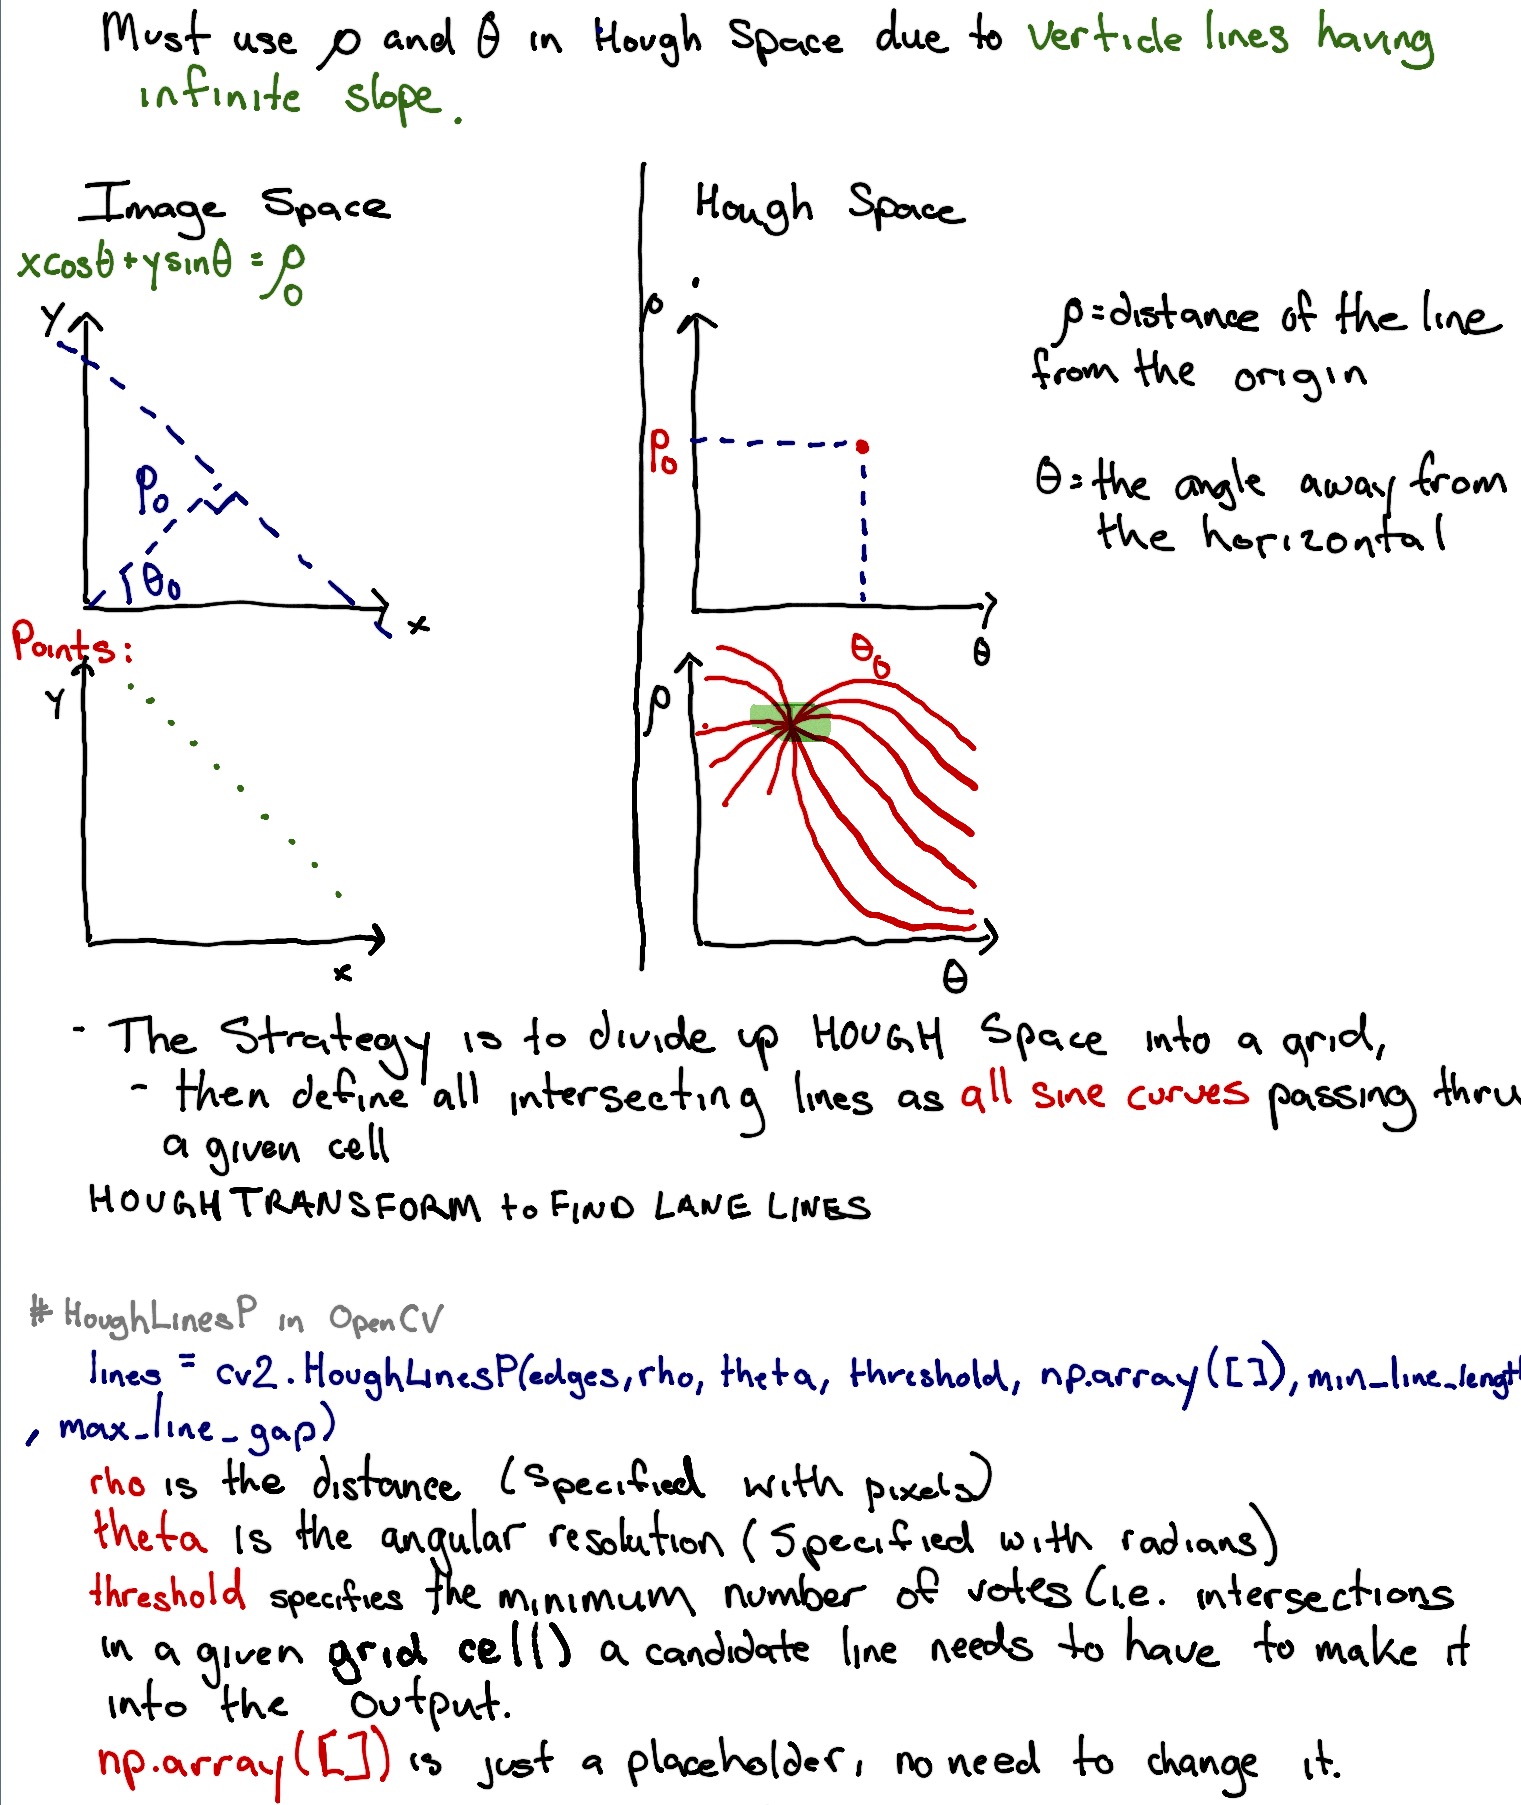 Must use ρ and θ in Hough Space due to verticle lines having
infinite slope.
Image Space
xcosθ+ysinθ = ρ
0
y
ρ₀
θ₀
x
Hough Space
ρ
ρ₀
θ₀
θ
ρ=distance of the line
from the origin
θ=the angle away from
the horizontal
Points:
y
x
ρ
θ
- The Strategy is to divide up HOUGH Space into a grid,
- then define all intersecting lines as all sine curves passing thru
a given cell
HOUGH TRANSFORM to FIND LANE LINES
# HoughLinesP in OpenCV
lines = cv2.HoughLinesP(edges, rho, theta, threshold, np.array([]), min_line_length
, max_line_gap)
rho is the distance (Specified with pixels)
theta is the angular resolution (Specified with radians)
threshold specifies the minimum number of votes (i.e. intersections
in a given grid cell) a candidate line needs to have to make it
into the output.
np.array([]) is just a placeholder, no need to change it.